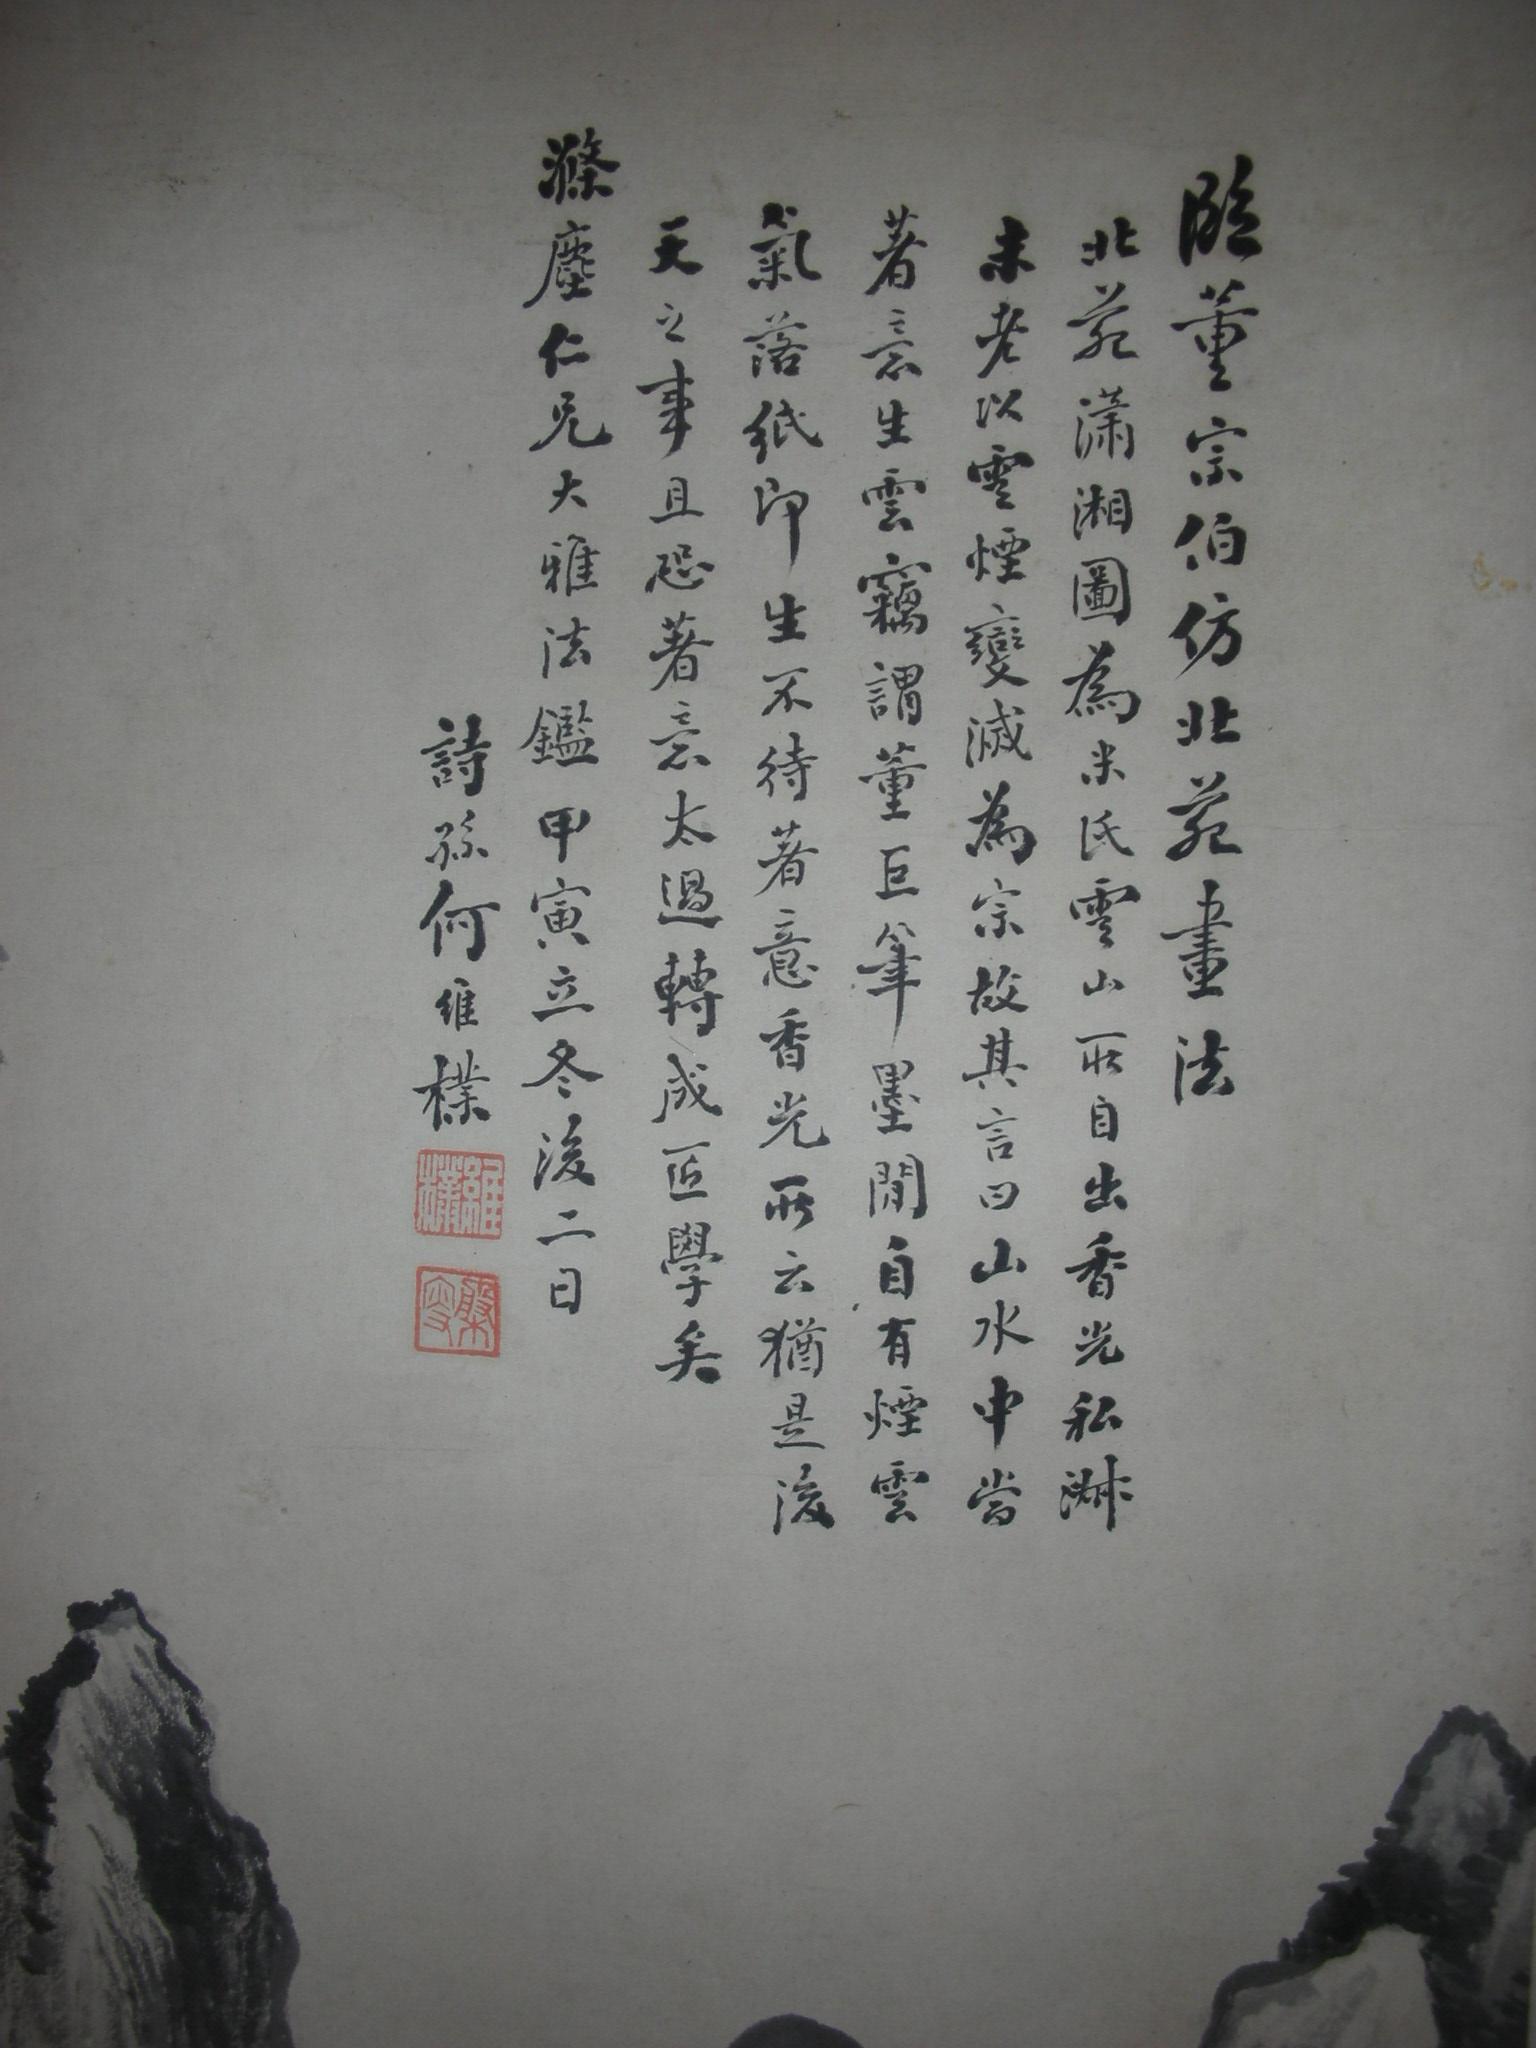 臨董宗伯仿北苑畫法
北苑瀟湘圖為米氏雲山所自出香光私淑
米老以雲煙變滅為宗故其言曰山水中當
著意生雲竊謂董巨筆墨間自有煙雲
氣落紙即生不待著意香光所云猶是後
天之事且恐著意太過轉成匠學矣
滌塵仁兄大雅法鑑甲寅立冬後二日
詩孫何維樸
維樸
盤叟